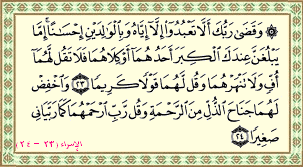 ۞ وَقَضَىٰ رَبُّكَ أَلَّا تَعْبُدُوٓا۟ إِلَّآ إِيَّاهُ وَبِٱلْوَٰلِدَيْنِ إِحْسَٰنًا ۚ إِمَّا
يَبْلُغَنَّ عِندَكَ ٱلْكِبَرَ أَحَدُهُمَآ أَوْ كِلَاهُمَا فَلَا تَقُل لَّهُمَآ
أُفٍّ وَلَا تَنْهَرْهُمَا وَقُل لَّهُمَا قَوْلًا كَرِيمًا ٢٣ وَٱخْفِضْ
لَهُمَا جَنَاحَ ٱلذُّلِّ مِنَ ٱلرَّحْمَةِ وَقُل رَّبِّ ٱرْحَمْهُمَا كَمَا رَبَّيَانِى
صَغِيرًا ٢٤
الإسراء (٢٣ - ٢٤)